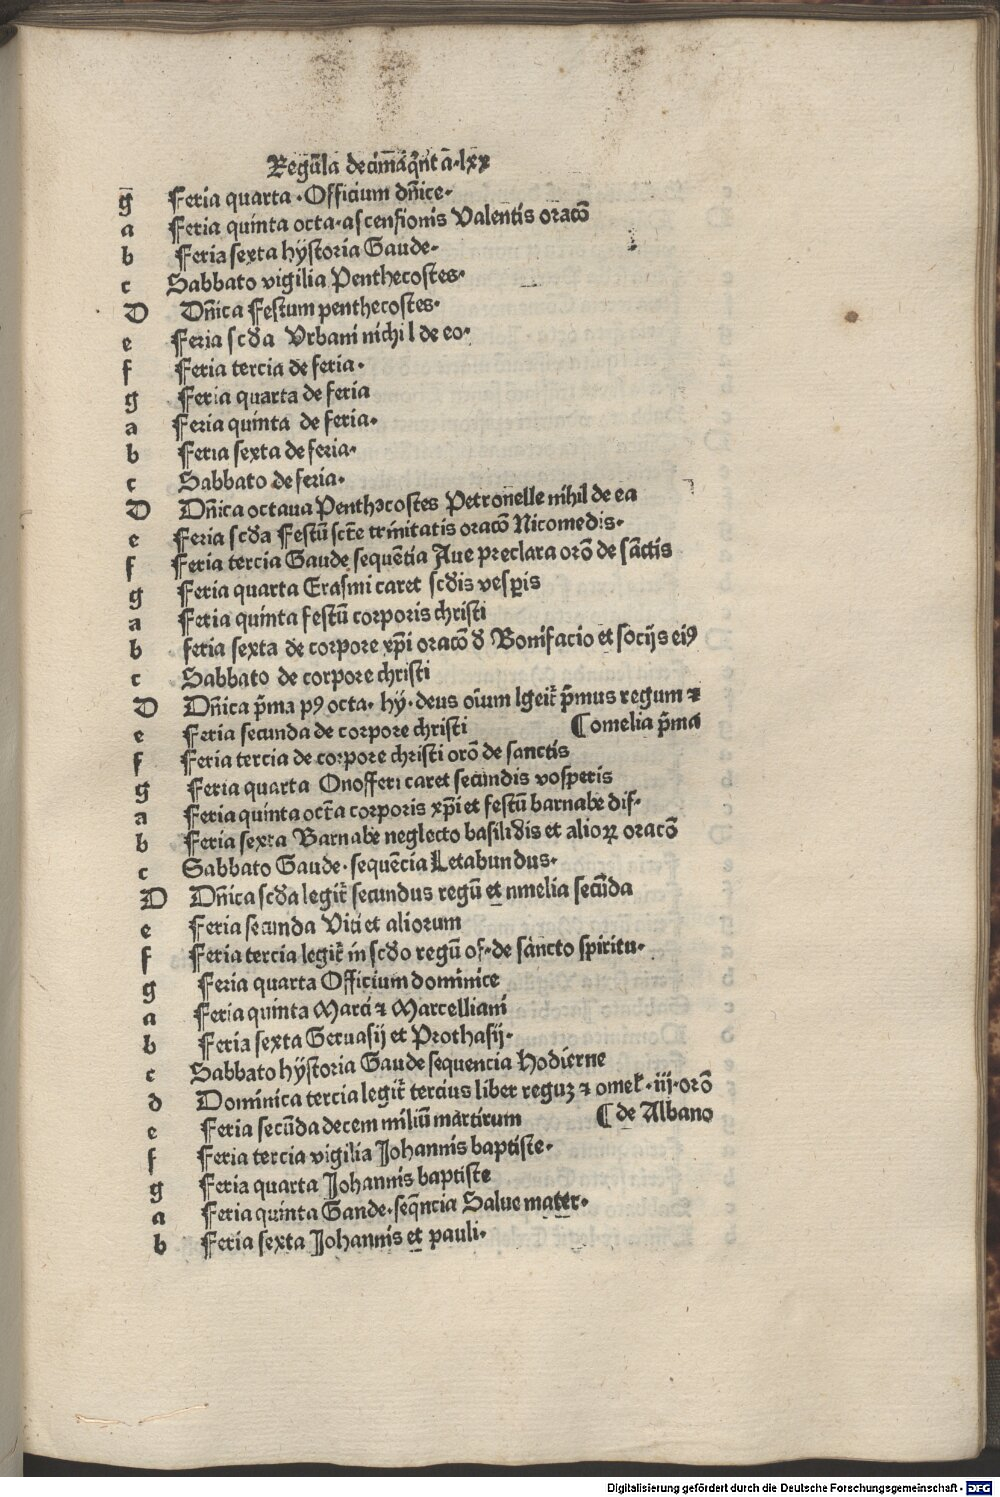 Regul̄a decim̄aq̄nt ā·lxx
ḡ Feria quarta · Officium dn̄ice·
a Feria quinta octa·ascensionis Valentis oracō
b Feria sexta hystoria Gaude·
c Sabbato vigilia Penthecostes·
D Dn̄ica Festum penthecostes·
e Feria scd̄a Vrbani nichil de eo·
f Feria tercia de feria·
g Feria quarta de feria
a Feria quinta de feria·
b Feria sexta de feria·
c Sabbato de feria·
D Dn̄ica octaua Penthecostes Petronelle nihil de ea
e Feria scd̄a Festū sct̄e trinitatis oracō Nicomedis·
f Feria tercia Gaude sequētia Aue preclara orō de sāctis
g Feria quarta Erasmi caret scd̄is vesꝑis
a Feria quinta festū corporis christi
b feria sexta de corpore xp̄i oracō đ Bonifacio et socijs eiꝰ
c Sabbato de corpore christi
D Dn̄ica p̄ma pꝰ octa· hy· deus oīum lgeit᷑ p̄mus regum ⁊
e Feria secunda de corpore christi ¶ omelia p̄ma
f Feria tercia de corpore christi orō de sanctis
g Feria quarta Onofferi caret secundis vosperis
a Feria quinta oct̄a corporis xp̄i et festū barnabe dif·
b Feria sexta Barnabe neglecto basilidis et alioꝝ oracō
c Sabbato Gaude · sequēcia Letabundus·
D Dn̄ica scd̄a legit᷑ secundus regū et nmelia secūda
e Feria secunda Viti et aliorum
f Feria tercia legit᷑ in scd̄o regū of·de sancto spiritu·
g Feria quarta Officium dominice
a Feria quinta Marci ⁊ Marcelliani
b Feria sexta Geruasij et Prothasij·
c Sabbato hystoria Gaude sequencia Hodierne
d Dominica tercia legit᷑ tercius liber reguꝫ ⁊ omel᷑·iij·orō
e Feria secūda decem miliū martirum ¶ de Albano
f Feria tercia vigilia Johannis baptiste·
g Feria quarta Johannis baptiste
a Feria quinta Gande·seq̄ncia Salue mater·
b Feria sexta Johannis et pauli·
Digitalisierung gefördert durch die Deutsche Forschungsgemeinschaft - DFG